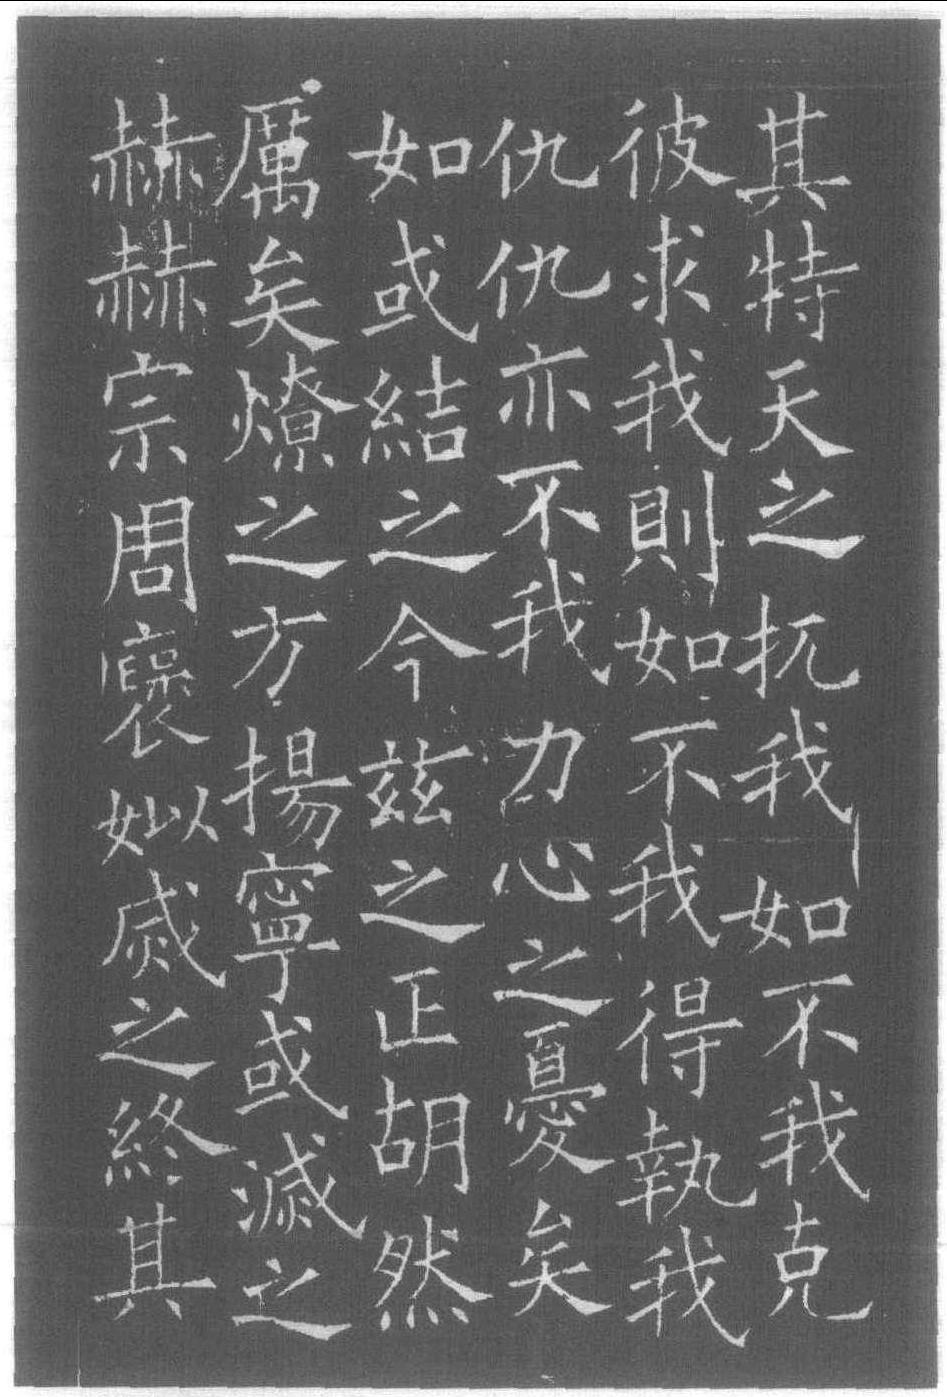 其特天之扤我如不我克
彼求我則如不我得執我
仇仇亦不我力心之憂矣
如或結之今茲之正胡然
厲矣燎之方揚寧或滅之
赫赫宗周褒姒烕之終其